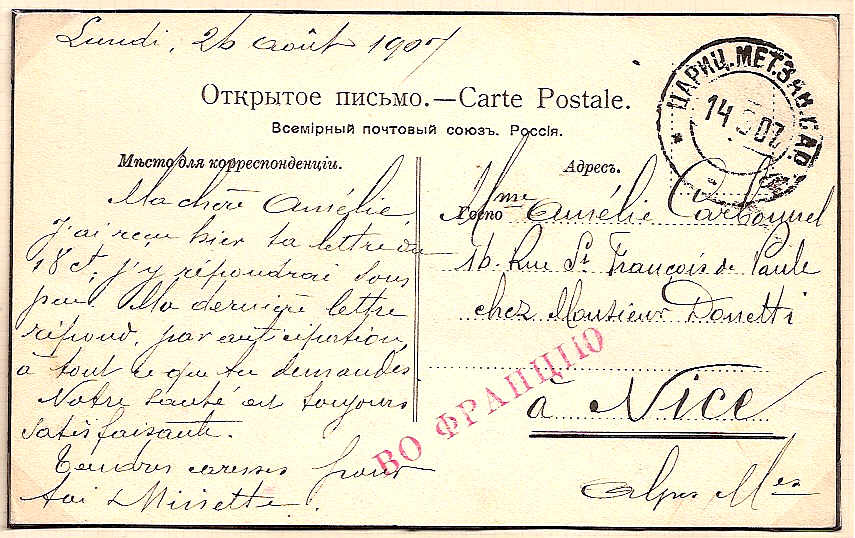 Lundi, 26 août 1907
Открытое письмо.—Carte Postale.
Всемірный почтовый союзъ. Россія.
ЦАРИЦ. МЕТ. ЗАВ. САР.
14 8 07
Мѣсто для корреспонденціи.
Ma chère Amélie
J'ai reçu hier ta lettre du
18 ct, j'y répondrai sous
peu. Ma dernière lettre
répond, par anticipation,
à tout ce que tu demandes.
Notre santé est toujours
satisfaisante.
Tendres caresses pour
toi & Missette.
Адресъ.
Госпо
Mme Amélie Carbonnel
16 Rue St François de Paule
chez Monsieur Donetti
ВО ФРАНЦІЮ
à Nice
Alpes Mes